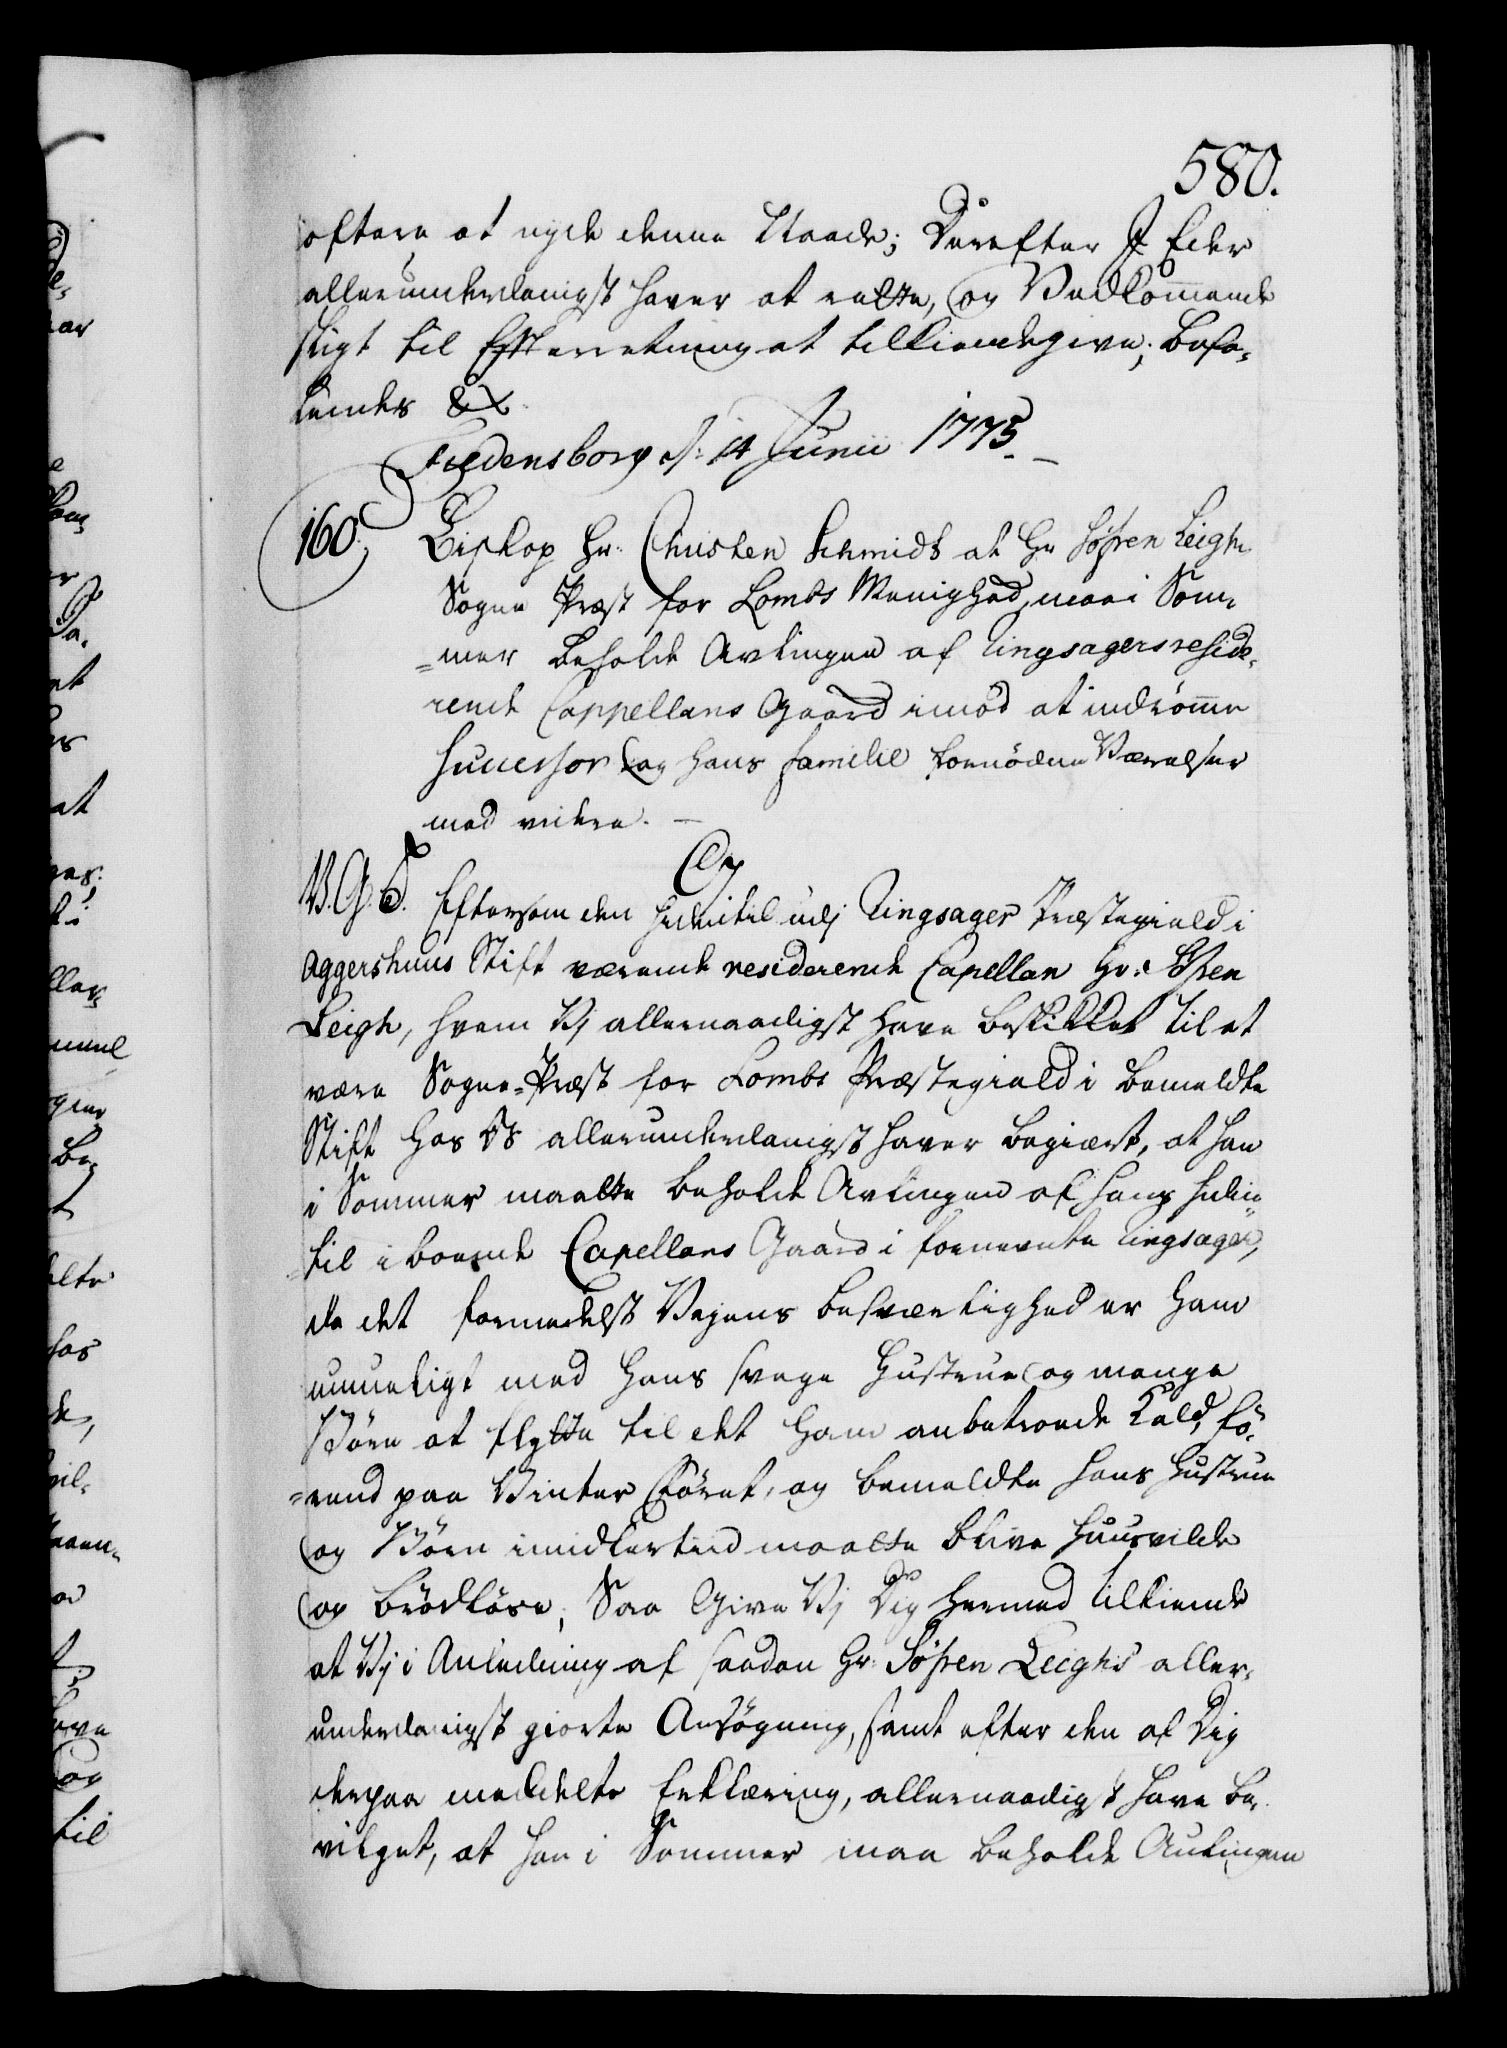 580.
oftere at nyde denne Naade; Derefter I Eder
allerunderdanigst haver at rette, og Vedkommende
sligt til Efterretning at tilkiendegive; Befa-
lendes &c.
Fredensborg d: 14 Junii 1775.
160. Biskop Hr. Christen Schmidt at Hr Søfren Leigh
Sogne Præst for Lombs Menighed, maa i Som-
=mer beholde Avlingen af Ringsagers reside-
rende Cappellans Gaard imod at indrömme
Successor og hans familie fornödne Værelser
med videre.
C7
V. G. T. Eftersom den hidintil udj Ringsager Præstegield i
Aggershuus Stift værende residerende Capellan Hr: Søfren
Leigh, hvem Vj allernaadigst have beskikket til at
være Sogne-Præst for Lombs Præstegield i bemeldte
Stift hos Os allerunderdanigst haver begiært, at han
i Sommer maatte beholde Avlingen af hans hidin-
=til iboende Capellans Gaard i fornevnte Ringsager,
da det formedelst Vejens besværlighed er ham
umueligt med hans svage Hustrue og mange
Börn at flytte til det ham anbetroede Kald, fö-
=rend paa Vinter Föret, og bemeldte hans Hustrue
og Börn imidlertiid maatte blive huusvilde
og brödlöse; Saa Give Vj Dig hermed tilkiende
at Vj i Anledning af saadan Hr: Søfren Leighs aller-
underdanigst giorte Ansögning, samt efter den af Dig
derpaa meddelte Erklæring, allernaadigst have be-
vilget, at han i Sommer maa beholde Avlingen